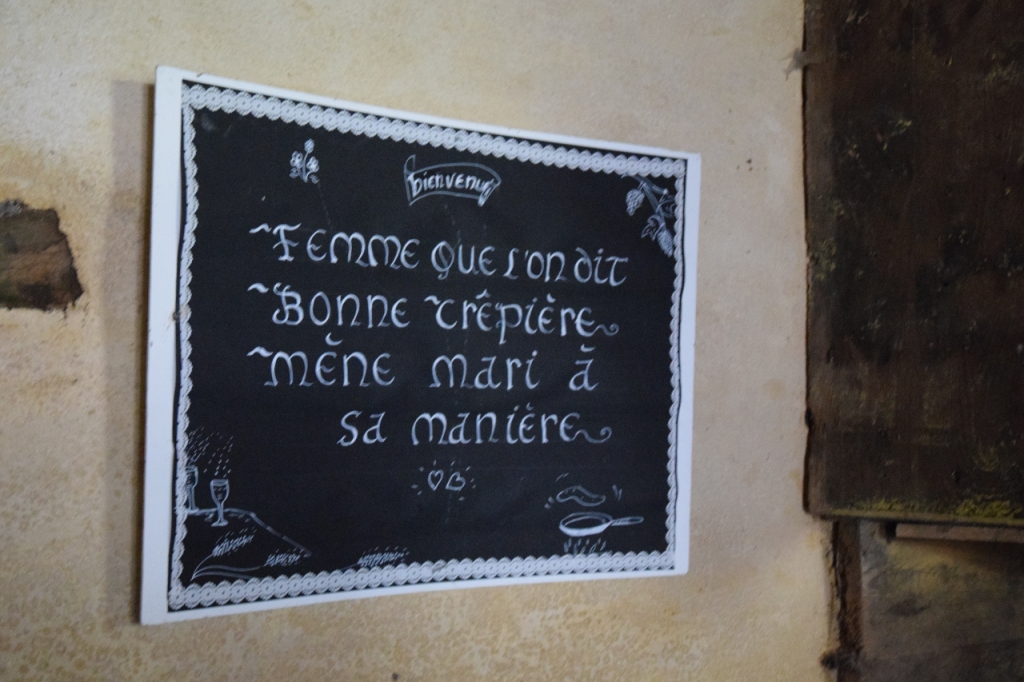 bienvenue
Femme que l'on dit
Bonne crêpière
mène mari à
sa manière